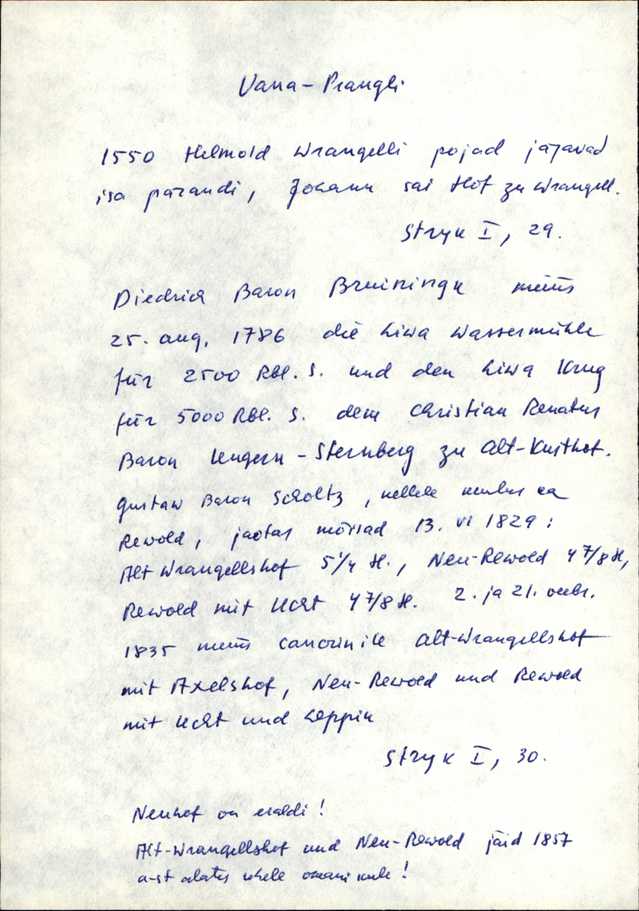 Vana-Prangli
1550 Helmold Wrangelli pojad jagavad
isa pärandi, Johann sai Hof zu Wrangell.
Stryk I, 29.
Diedrich Baron Bruiningk müüs
25. aug. 1786 die Liwa Wassermühle
für 2500 Rbl. S. und den Liwa Krug
für 5000 Rbl. S. dem Christian Renatus
Baron Ungern-Sternberg zu Alt-Kusthof.
Gustav Baron Scholtz, kellele kuulus ka
Rewold, jaotas mõisad 13. VI 1829:
Alt Wrangellshof 5 1/4 H., Neu-Rewold 4 7/8 H,
Rewold mit Ucht 4 7/8 H. 2. ja 21. veebr.
1835 müüs Alt-Wrangellshof
mit Axelshof, Neu-Rewold und Rewold
mit Ucht und Leppin
Stryk I, 30.
Neuhof on eraldi!
Alt-Wrangellshof und Neu-Rewold jäid 1857
a-st alates ühele omanikule!